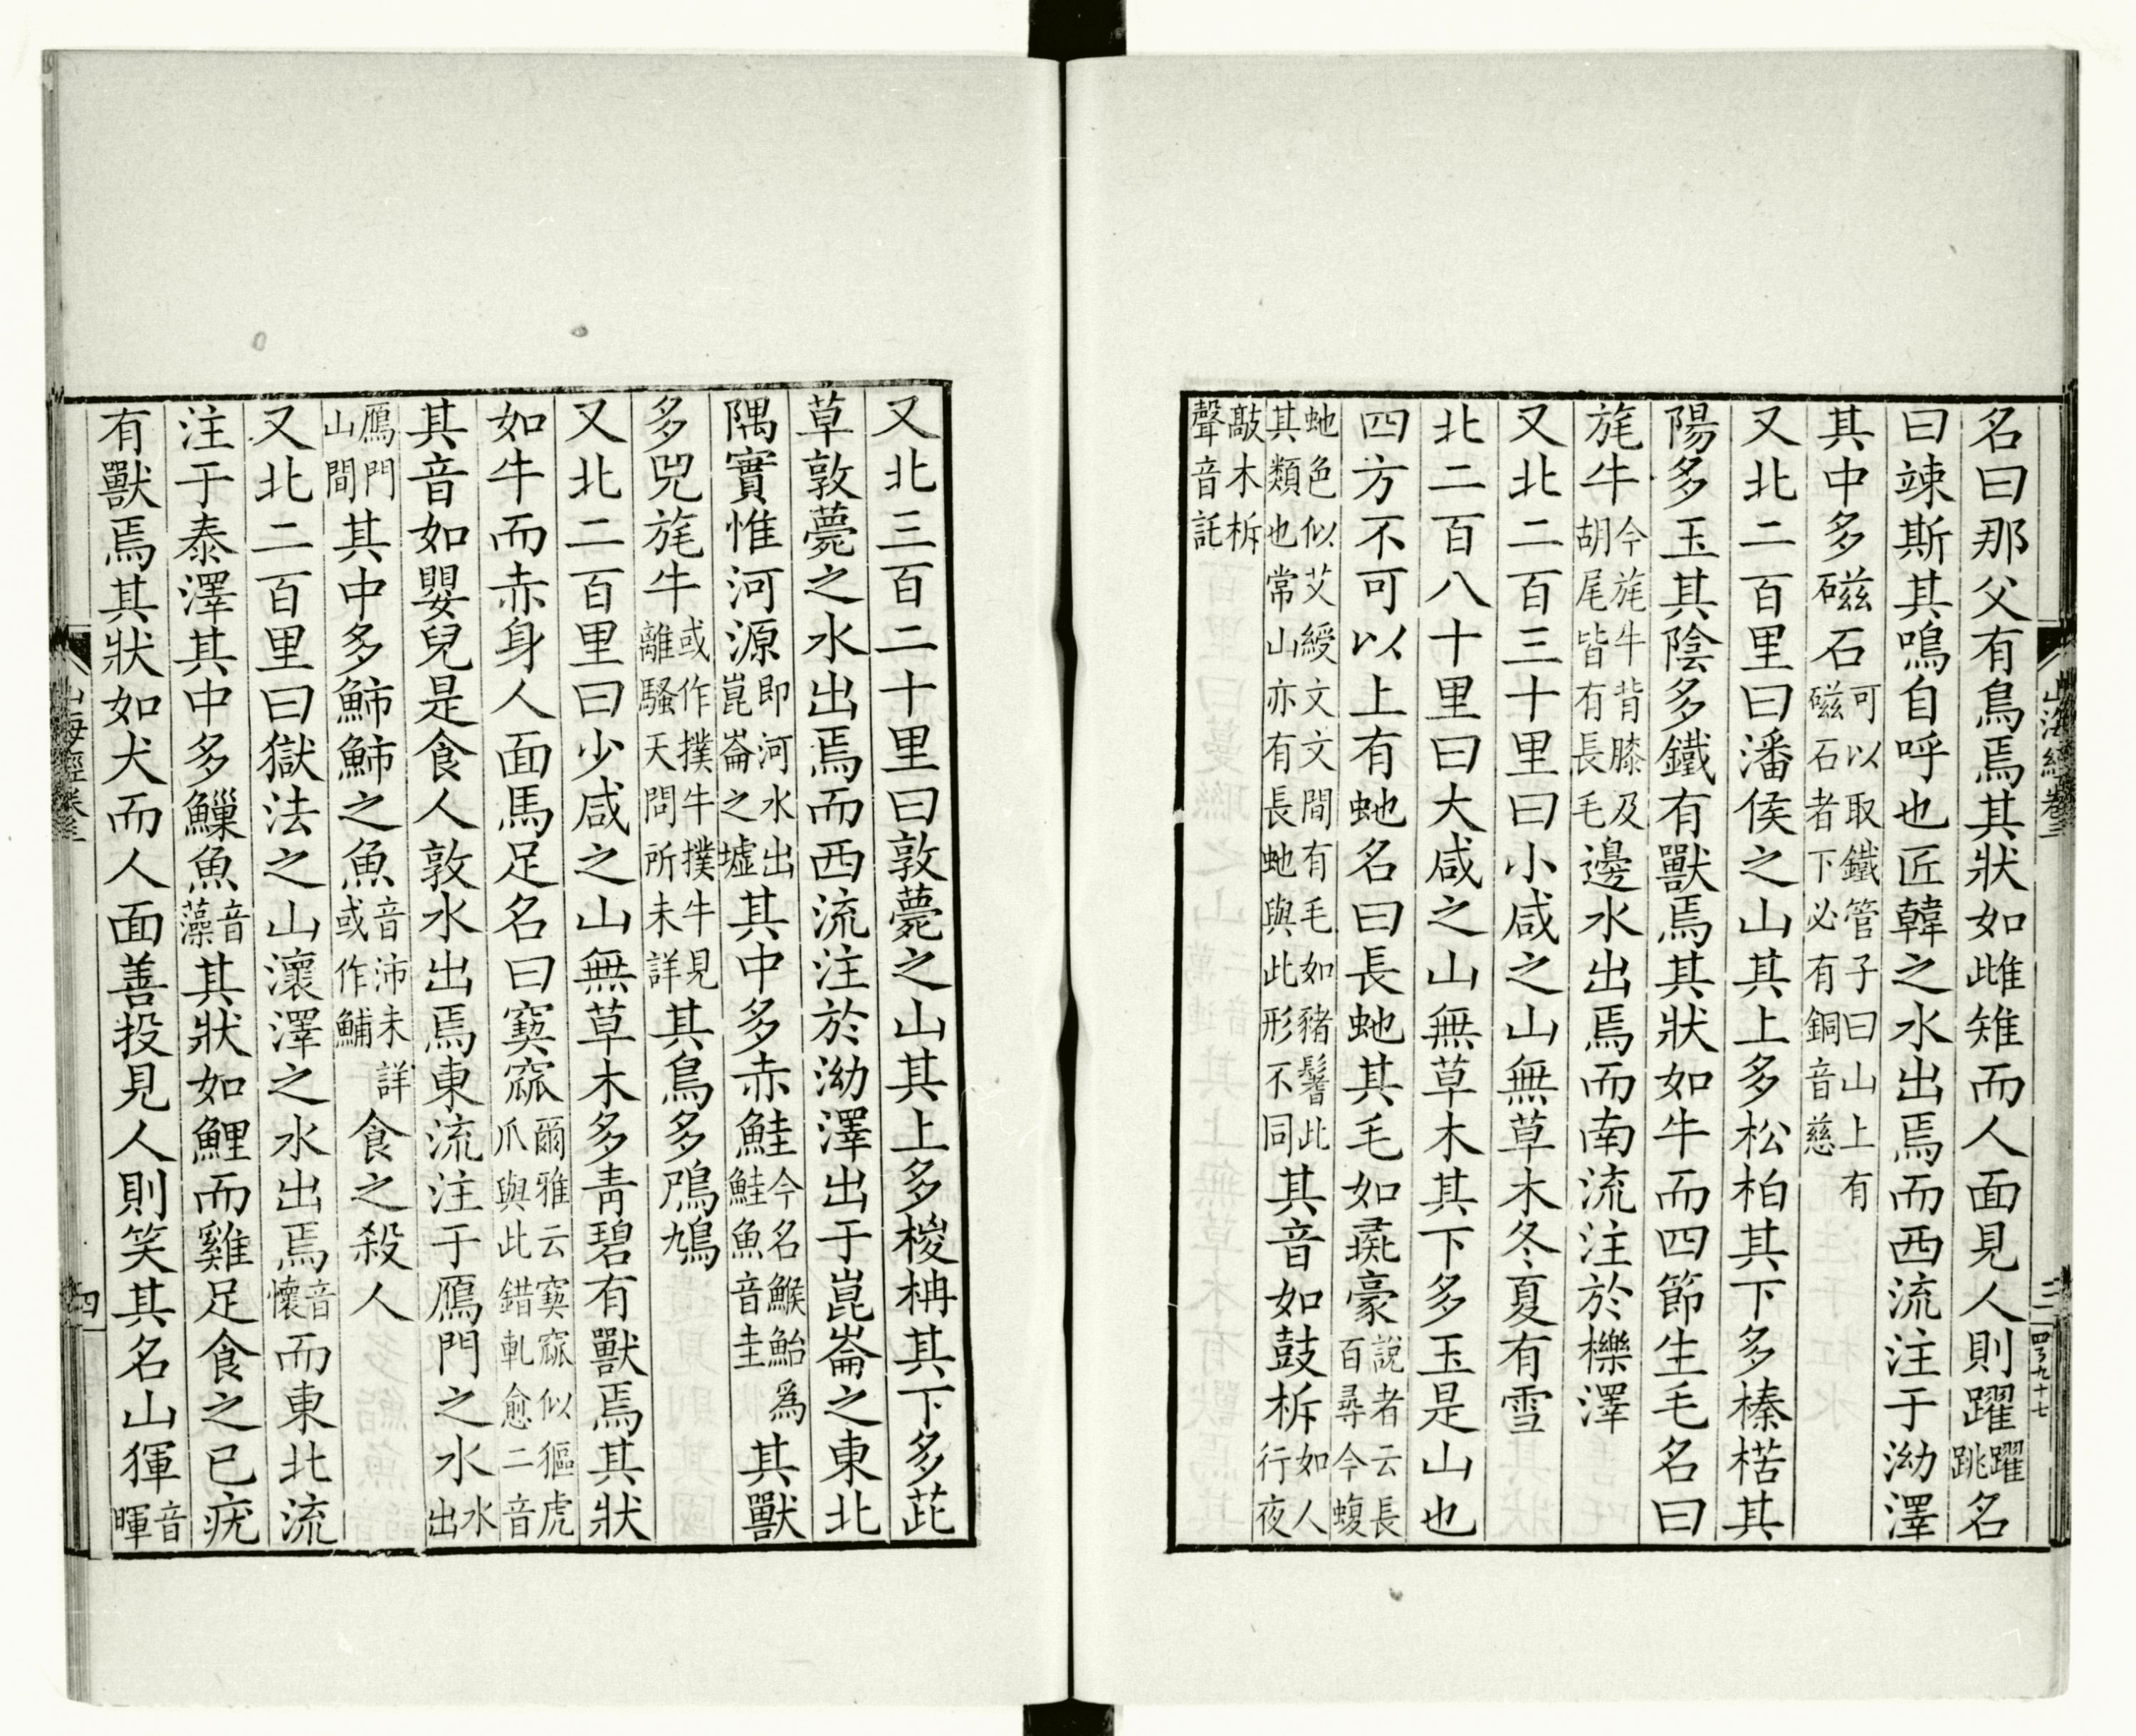 名曰那父有鳥焉其狀如雌雉而人面見人則躍躍跳名
曰竦斯其鳴自呼也匠韓之水出焉而西流注于泑澤
其中多磁石可以取鐵管子曰山上有磁石者下必有銅音慈
又北二百里曰潘侯之山其上多松柏其下多榛楛其
陽多玉其陰多鐵有獸焉其狀如牛而四節生毛名曰
旄牛今旄牛背膝及胡尾皆有長毛邊水出焉而南流注於櫟澤
又北二百三十里曰小咸之山無草木冬夏有雪
北二百八十里曰大咸之山無草木其下多玉是山也
四方不可以上有虵名曰長虵其毛如彘豪說者云長百尋今蝮
虵色似艾綬文文間有毛如豬鬐此其類也常山亦有長虵與此形不同其音如鼓柝如人行夜
敲木柝聲音託
山海經卷三
三
四百九十七
又北三百二十里曰敦薨之山其上多椶枏其下多茈
草敦薨之水出焉而西流注於泑澤出于崑崙之東北
隅實惟河源即河水出崑崙之墟其中多赤鮭今名鯸鮐爲鮭魚音圭其獸
多兕旄牛或作撲牛撲牛見離騷天問所未詳其鳥多鳲鳩
又北二百里曰少咸之山無草木多青碧有獸焉其狀
如牛而赤身人面馬足名曰窫窳爾雅云窫窳似貙虎爪與此錯軋愈二音
其音如嬰兒是食人敦水出焉東流注于鴈門之水水出
鴈門山間其中多䰽䰽之魚音沛未詳或作鯆食之殺人
又北二百里曰獄法之山瀤澤之水出焉音懷而東北流
注于泰澤其中多鱳魚音藻其狀如鯉而雞足食之已疣
有獸焉其狀如犬而人面善投見人則笑其名山𤟤音暉
山海經卷三
四